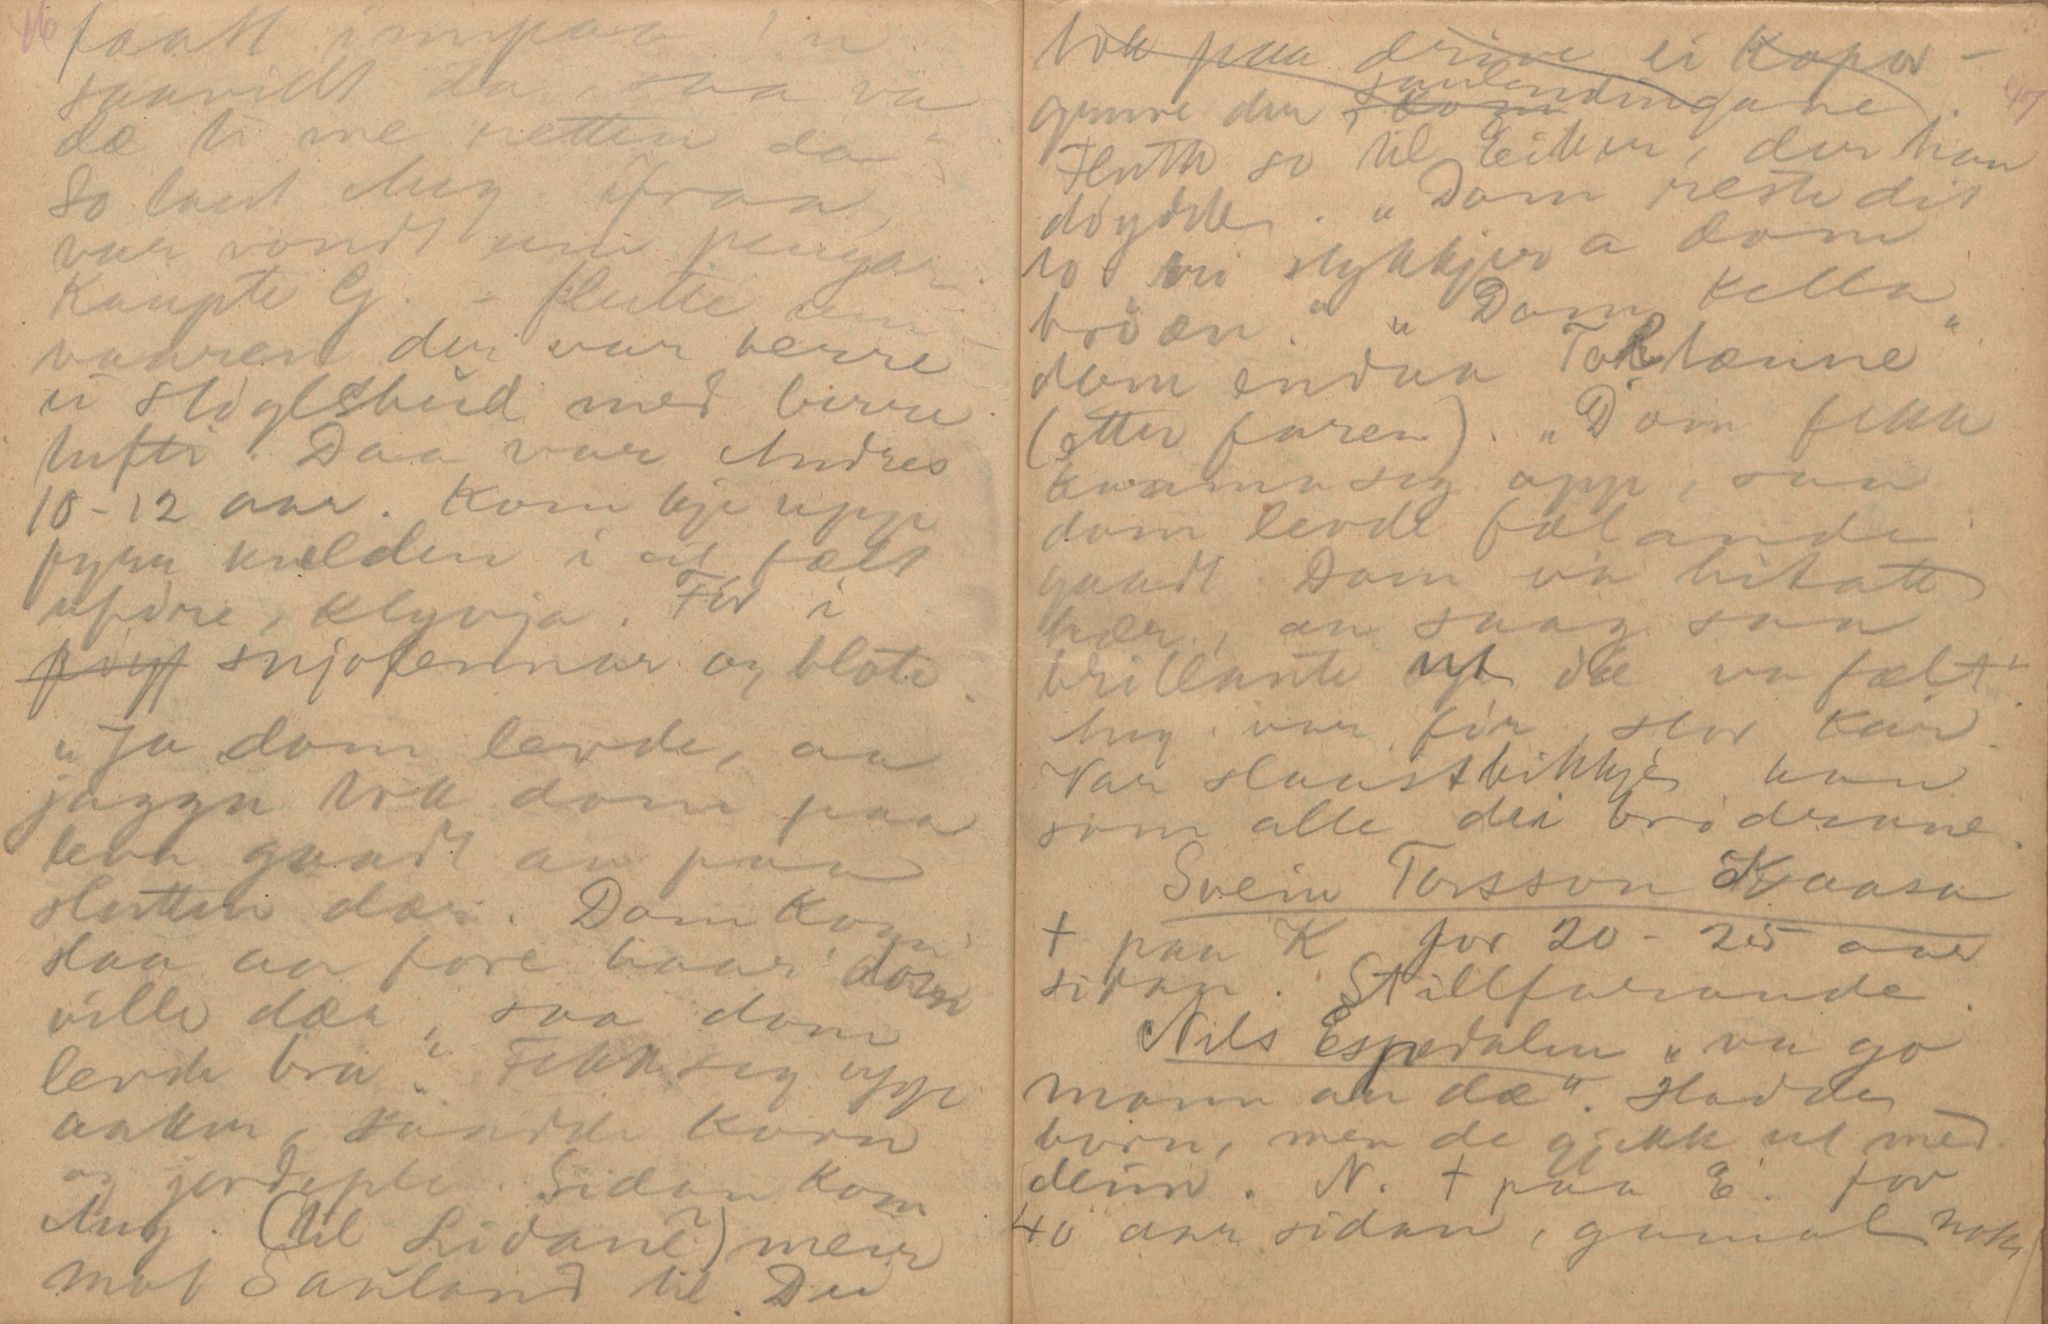 46
faatt innpaa 'n
saavidt da, saa va
dæ te me retten da"
So laut Aug. ifraa,
var vondt um pengar.
Kaupte G. - flutte um
vaaren der var berre
ei stoglsbud med berre
tufti. Daa var Andres
10-12 aar. Kom kje upp
fyrr kvelden i eit fælt
uføre, klyvja. For i
snjofennar og blote.
"Ja dom levde, aa
jaggu tok dom paa
leva gaadt au paa
slutten dær. Dom konn'
slaa au fore haar dom
ville dær, saa dom
levde bra". Fekk seg upp
aaker, saadde korn
og jordeple. Sidan kom
Aug. (til Lidane?) meir
mot Sauland til. Dei
47
tok paa drive ei Kopar-
gruve der saulendingane.
Flutte so til Eiker, der han
døydde. "Dom reste dit
to tri stykkjer a dom
brøæn." "Dom kalla
dom endaa Tortænne"
(etter faren). "Dom fekk
kvamna seg opp, saa
dom levde fælande
gaadt. Dom va bitatt
hær, an saag saa
brillante ut dæ va fælt".
Aug. var før, stor kar.
Var slaastbikkje han
som alle dei brødrane.
Svein Torsson Kaasa
† paa K for 20-25 aar
sidan. Stillfarande.
Nils Espedalen "va go
mann au dæ". Hadde
born, men de gjekk ut med
deim. N. † paa E. for
40 aar sidan, gamal nokk